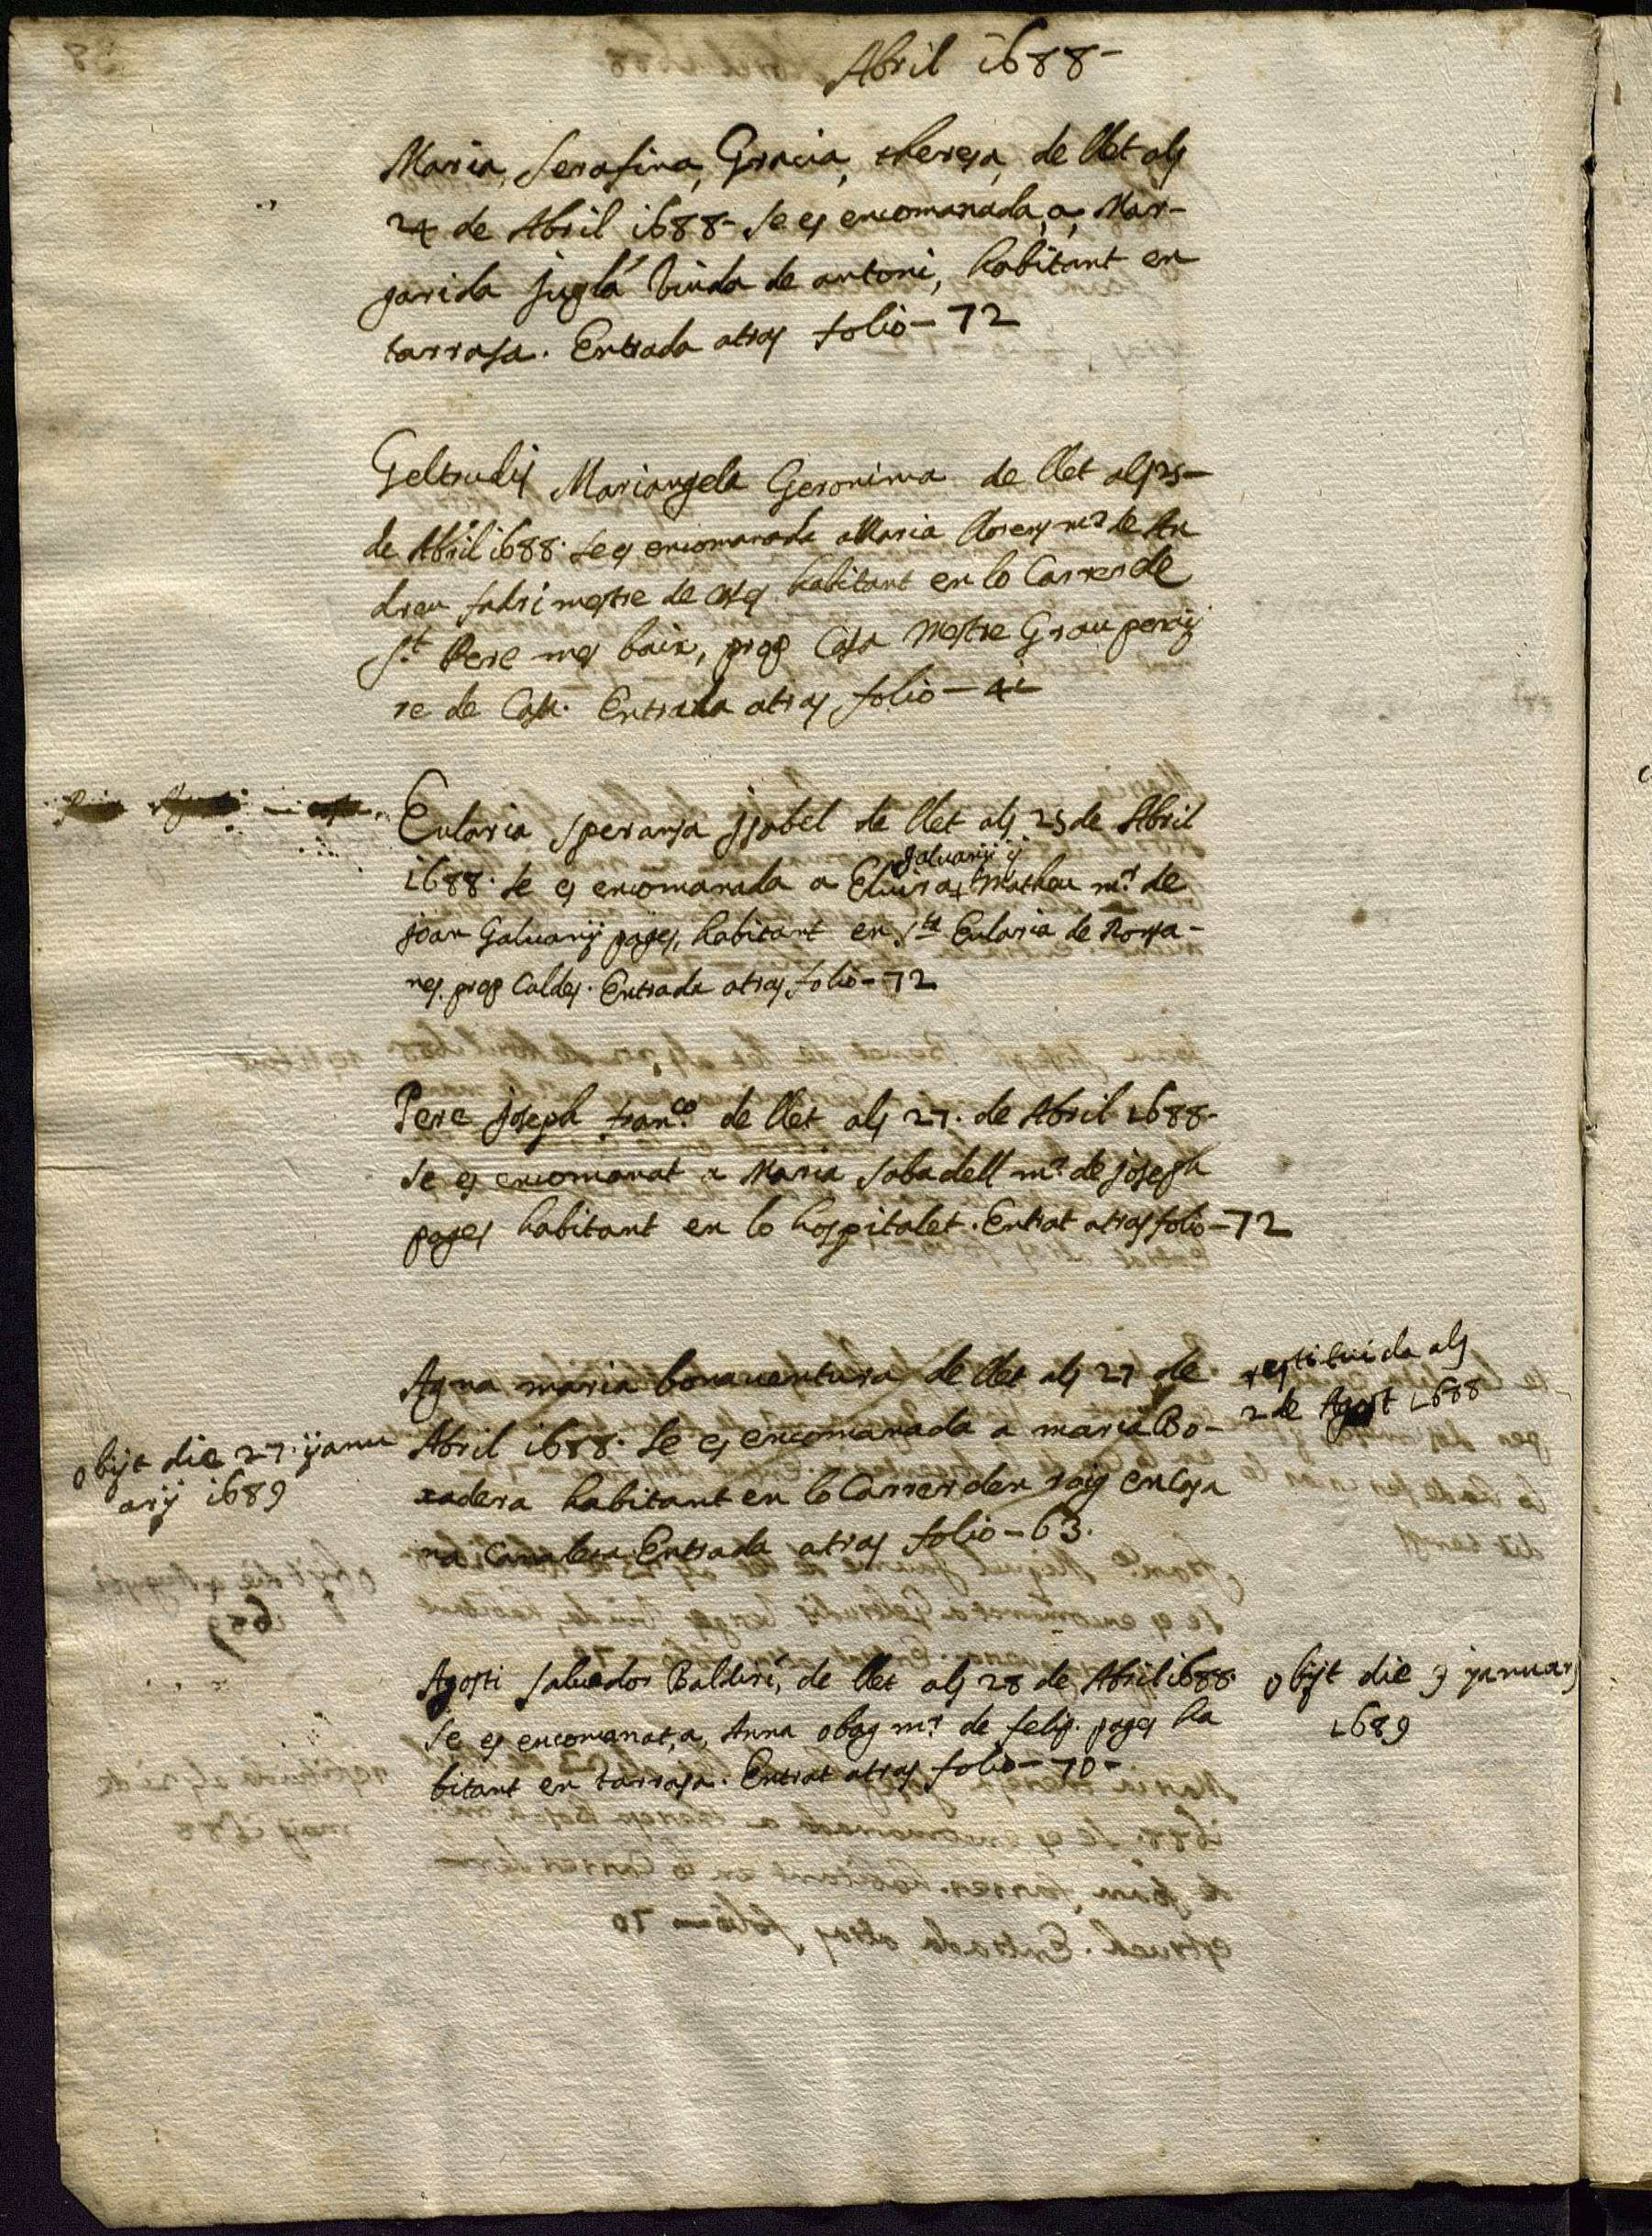 Abril 1688-
Maria, Serafina, Gracia, theresa, de llet als
24 de Abril 1688- se es encomanada, a, Mar-
garida juglá Viuda de antoni, habitant en
tarrasa. Entrada atras folio- 72
Geltrudis Mariangela Geronima de llet als 25-
de Abril 1688. se es encomanada a Maria llorens mr de An
dreu fabri mestre de cases habitant en lo Carrer de
St Pere mes baix, prop Casa Mestre Grau
re de Casa. Entrada atras folio- 41
Eularia speransa jsabel de llet als 25 de Abril
Galuany y
1688. se es encomanada a Eluira Matheu mr de
joan Galuany pages, habitant en Sta Eularia de Ronsa-
nes. prop Caldes. Entrada atras folio- 72
Pere joseph franco de llet als 27. de Abril 1688-
se es encomanat a Maria Sabadell mr de joseph
pages habitant en lo hospitalet. Entrat atras folio- 72
Agna maria bonauentura de llet als 27 de
Abril 1688. se es encomanada a maria Bo-
xadera habitant en lo Carrer den roig en Casa
na Canalera Entrada atras folio- 63.
restituida als
2 de Agost 1688
obijt die 27. ijanu
arij 1689
Agosti saluador Baldiri, de llet als 28 de Abril 1688
se es encomanat, a, Anna obag mr de felip. pages ha
bitant en tarrasa. Entrat atras folio- 70-
obijt die 9 januarj
1689